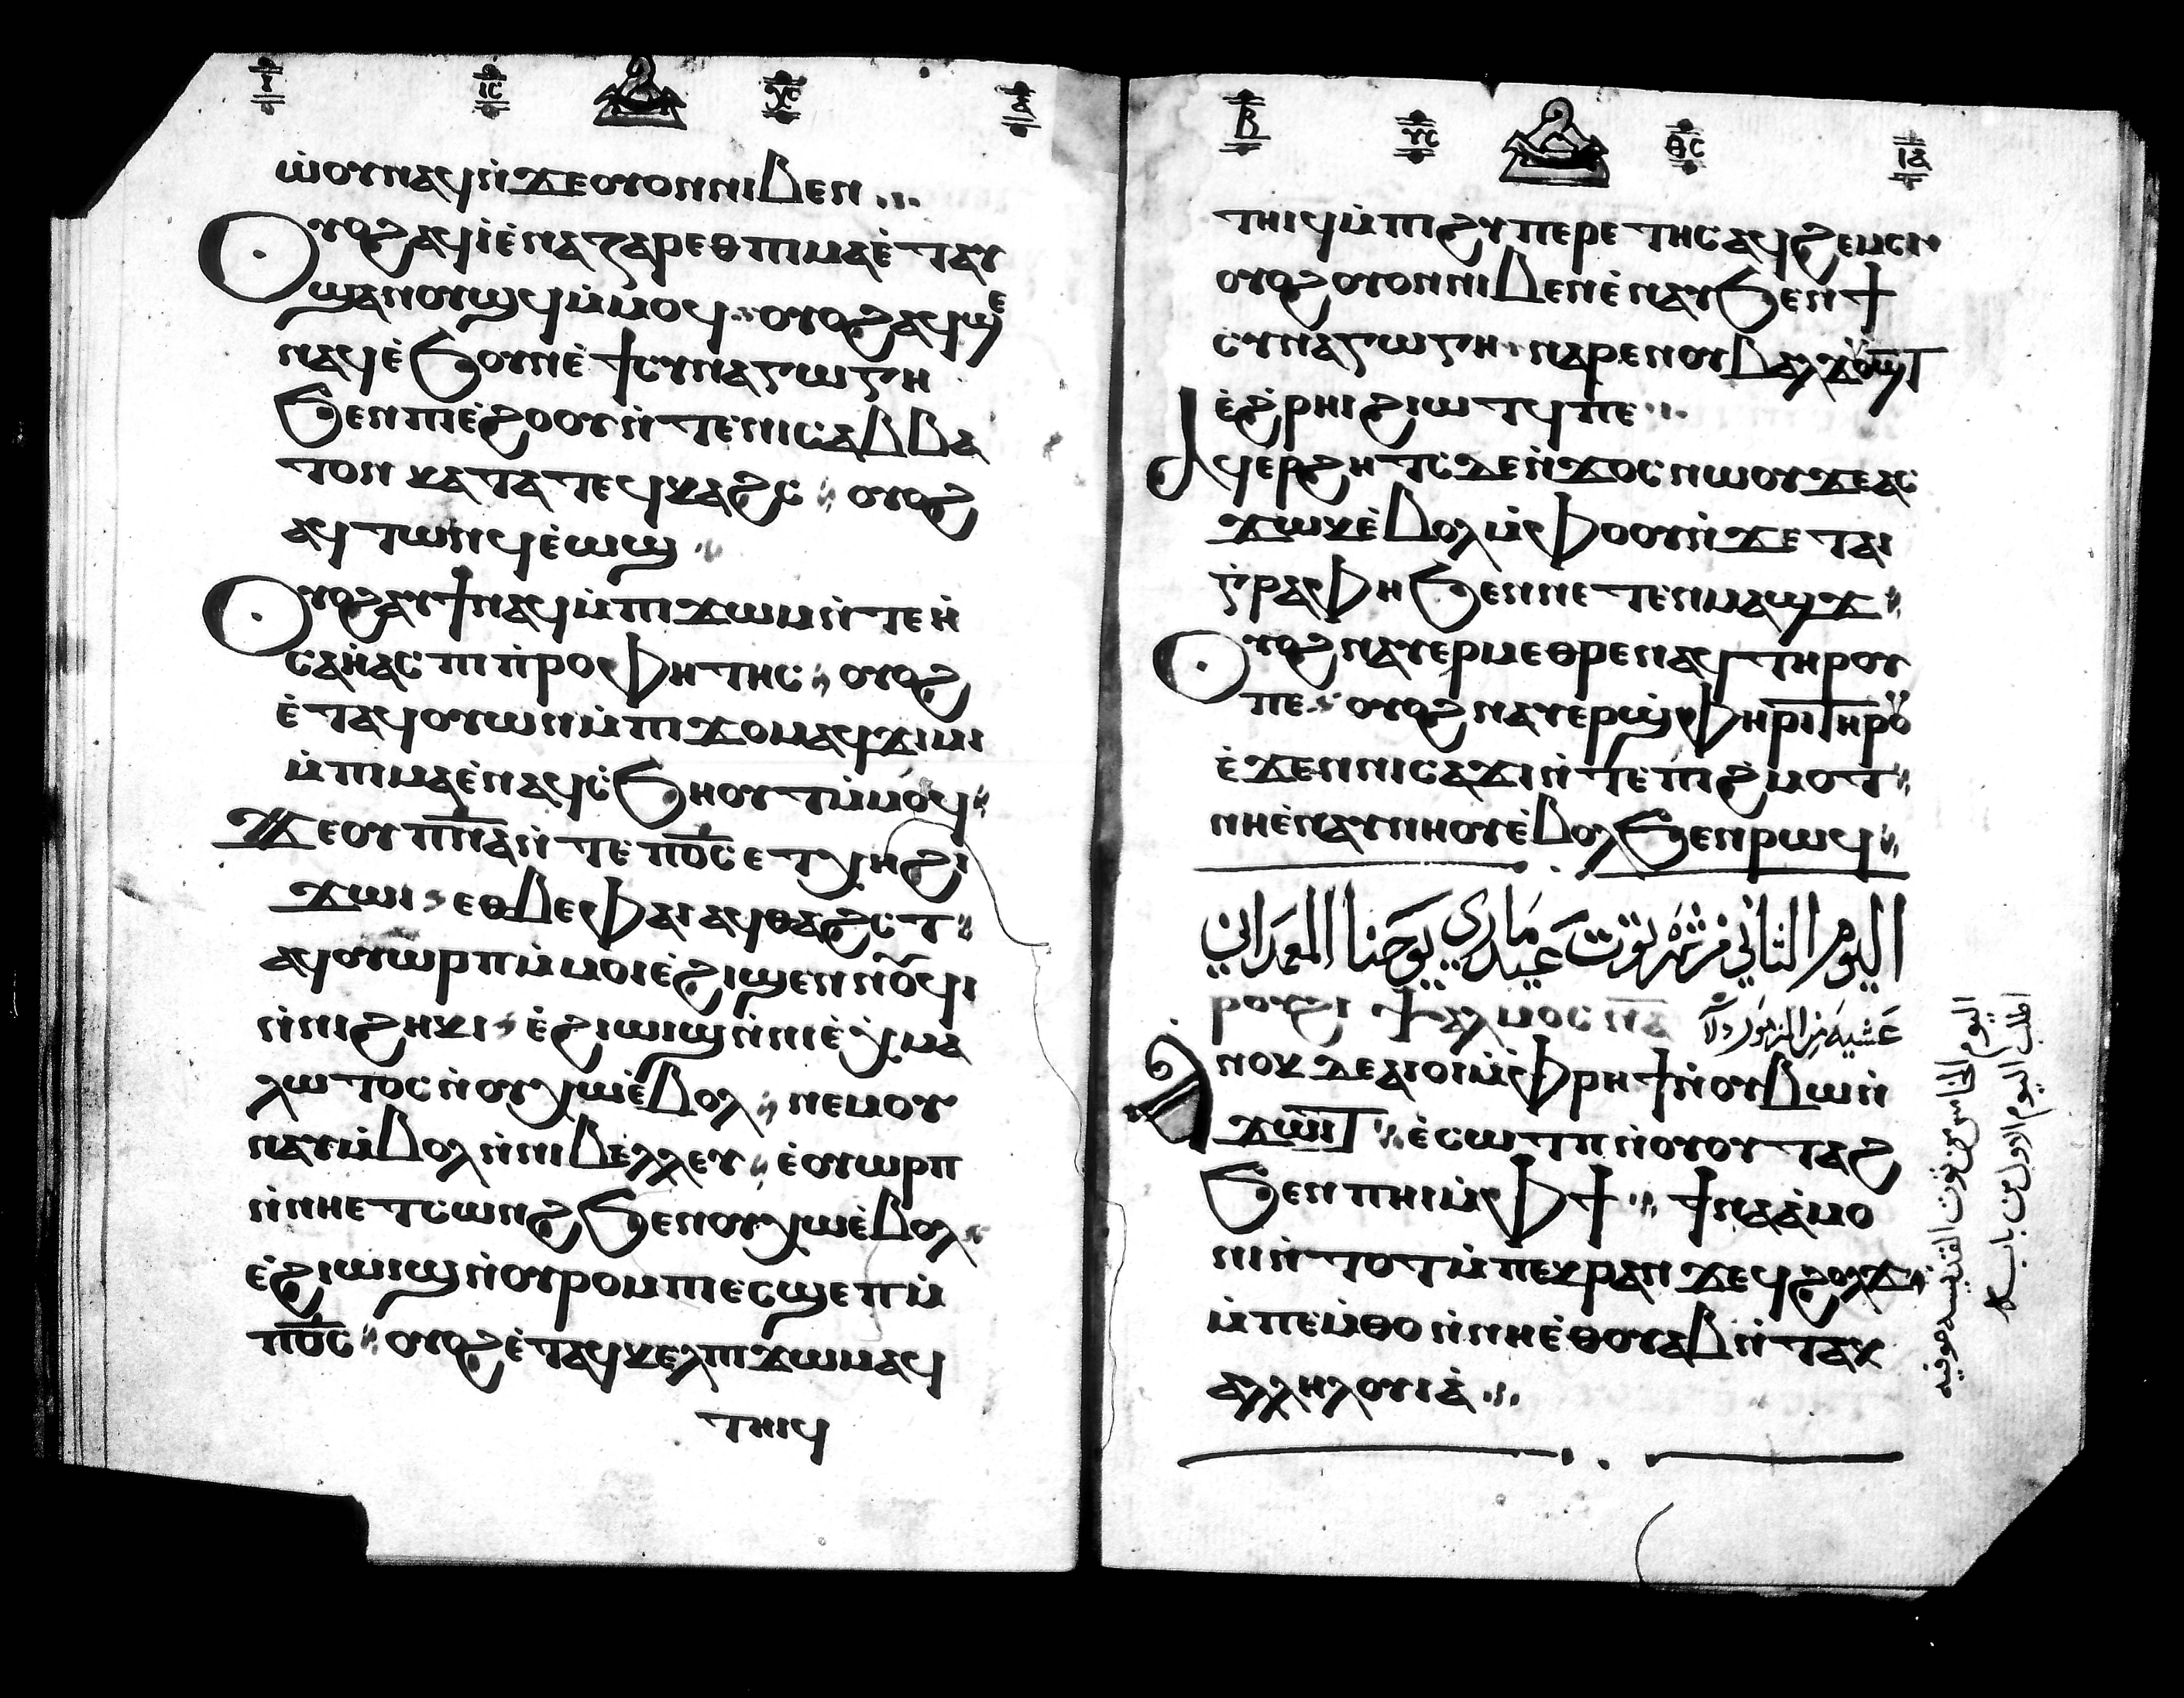 ⲓ ⲓ̅ⲥ̅ ⲭ̅ⲥ̅ ⲁ̅
ⲱ̀ⲟⲩⲛⲁϥⲛ̀ϫⲉⲟⲩⲟⲛⲛⲓⲃⲉⲛ
Ⲟⲩⲟϩⲁϥⲓ̀ⲉ̀ⲛⲁⲍⲁⲣⲉⲑⲡⲓⲙⲁⲉ̀ⲧⲁⲩ
ϣⲁⲛⲟⲩϣϥⲙ̀ⲙⲟϥ ⲟⲩⲟϩⲁϥϣⲉ
ⲛⲁϥⲉ̀ϧⲟⲩⲛⲉ̀ϯⲥⲩⲛⲁⲅⲱⲅⲏ
ϧⲉⲛⲡⲓⲉ̀ϩⲟⲟⲩⲛ̀ⲧⲉⲛⲓⲥⲁⲃⲃⲁ
ⲧⲟⲛ ⲕⲁⲧⲁⲧⲉϥⲕⲁϩⲥ ⲟⲩⲟϩ
ⲁϥⲧⲱⲛϥⲉ̀ⲱϣ
Ⲟⲩⲟϩⲁⲩϯⲛⲁϥⲙ̀ⲡⲓϫⲱⲙⲛ̀ⲧⲉⲏ̀
ⲥⲁⲏ̀ⲁⲥ ⲡⲓⲡ̀ⲣⲟⲫⲏⲧⲏⲥ ⲟⲩⲟϩ
ⲉ̀ⲧⲁϥⲟⲩⲱⲛⲙ̀ⲡⲓϫⲟⲙⲁϥϫⲓⲙⲓ
ⲙ̀ⲡⲓⲙⲁⲉ̀ⲛⲁϥⲥ̀ϧⲏⲟⲩⲧⲙ̀ⲙⲟϥ
Ϫⲉⲟⲩⲡ̅ⲛ̅ⲁ̅ⲛ̀ⲧⲉⲡ̅ⲟ̅ⲥ̅ⲉⲧⲭⲏϩⲓ
ϫⲱⲓ ⲉⲑⲃⲉⲫⲁⲓⲁϥⲑⲁϩⲥⲧ
ⲁϥⲟⲩⲱⲣⲡⲙ̀ⲙⲟⲓⲉ̀ϩⲓϣⲉⲛⲛⲟⲩϥⲓ
ⲛ̀ⲛⲓϩⲏⲕⲓ ⲉ̀ϩⲓⲱⲓϣⲛ̀ⲛⲓⲉ̀ⲭⲙⲁ
ⲗⲱⲧⲟⲥⲛ̀ⲟⲩⲭⲱⲉ̀ⲃⲟⲗ ⲛⲉⲙⲟⲩ
ⲛⲁⲩⲙ̀ⲃⲟⲗⲛ̀ⲛⲓⲃⲉⲗⲗⲉⲩ ⲉ̀ⲟⲩⲱⲣⲡ
ⲛ̀ⲛⲏⲉⲧⲥⲱⲛϩϧⲉⲛⲟⲩⲭⲱⲉ̀ⲃⲟⲗ
ⲉ̀ϩⲓⲱⲓϣⲛ̀ⲟⲩⲣⲟⲙⲡⲓⲉⲥϣⲉⲡⲙ̀
ⲡ̅ⲟ̅ⲥ̅ ⲟⲩⲟϩⲉ̀ⲧⲁϥⲕⲉⲗⲡⲓϫⲱⲙⲁϥ
ⲧⲏⲓϥ
ⲃ̅ ⲩ̅ⲥ̅ ⲑ̅ⲥ̅ ⲓ̅ⲁ̅
ⲧⲏⲓϥⲙ̀ⲡⲓϩⲩⲡⲉⲣⲉⲧⲏⲥⲁϥϩⲉⲙⲥⲓ
ⲟⲩⲟϩⲟⲩⲟⲛⲛⲓⲃⲉⲛⲉ̀ⲛⲁⲩϧⲉⲛϯ
ⲥⲩⲛⲁⲅⲱⲅⲏ ⲛⲁⲣⲉⲛⲟⲩⲃⲁⲗϫⲟⲩϣⲧ
ⲉ̀ϩ̀ⲣⲏⲓϩⲓⲱⲧϥⲡⲉ
Ⲁϥⲉⲣϩⲏⲧⲥⲇⲉⲛ̀ϫⲟⲥⲛⲱⲟⲩϫⲉⲁⲥ
ϫⲱⲕⲉ̀ⲃⲟⲗⲙ̀ⲫⲟⲟⲩⲛ̀ϫⲉⲧⲁⲓ
ⲅ̀ⲣⲁⲫⲏϧⲉⲛⲛⲉⲧⲉⲛⲙⲁϣϫ
Ⲟⲩⲟϩⲛⲁⲩⲉⲣⲙⲉⲑⲣⲉⲛⲁϥⲧⲏⲣⲟⲩ
ⲡⲉ ⲟⲩⲟϩⲛⲁⲩⲉⲣϣ̀ⲫⲏⲣⲓⲧⲏⲣⲟⲩ
ⲉ̀ϫⲉⲛⲛⲓⲥⲁϫⲓⲛ̀ⲧⲉⲡⲓϩ̀ⲙⲟⲧ
ⲛⲏⲉ̀ⲛⲁⲩⲛⲏⲟⲩⲉ̀ⲃⲟⲗϧⲉⲛⲣⲱϥ
اليوم الثاني من شهر توت عيد ماري يوحنا المعمداني
ⲣⲟⲩϩⲓ ⲯⲁⲗⲙⲟⲥ ⲛ̅ⲁ̅ عشيه من المزمور ٥١
Ⲁⲛⲟⲕ ⲇⲉⲁⲓⲟⲓⲙ̀ⲫⲣⲏϯⲛ̀ⲟⲩⲃⲱⲛ̀
ϫⲱⲓⲧ ⲉ̀ⲥⲱⲧⲡⲛ̀ⲟⲩⲟⲩⲧⲁϩ
ϧⲉⲛⲡⲏⲓⲙ̀ⲫϯ ϯⲛⲁⲁ̀ⲙⲟ
ⲛⲓⲛ̀ⲧⲟⲧⲙ̀ⲡⲉⲕⲣⲁⲛ ϫⲉϥϩⲟⲗϫ
ⲙ̀ⲡⲉⲙ̀ⲑⲟⲛ̀ⲛⲏⲉ̀ⲑⲟⲩⲁⲃⲛ̀ⲧⲁⲕ
ⲁⲗⲗⲏⲗⲟⲩⲓⲁ̀
اليوم الخامس من توت القديسه صوفيه
اطلب اليوم الاول من بابه